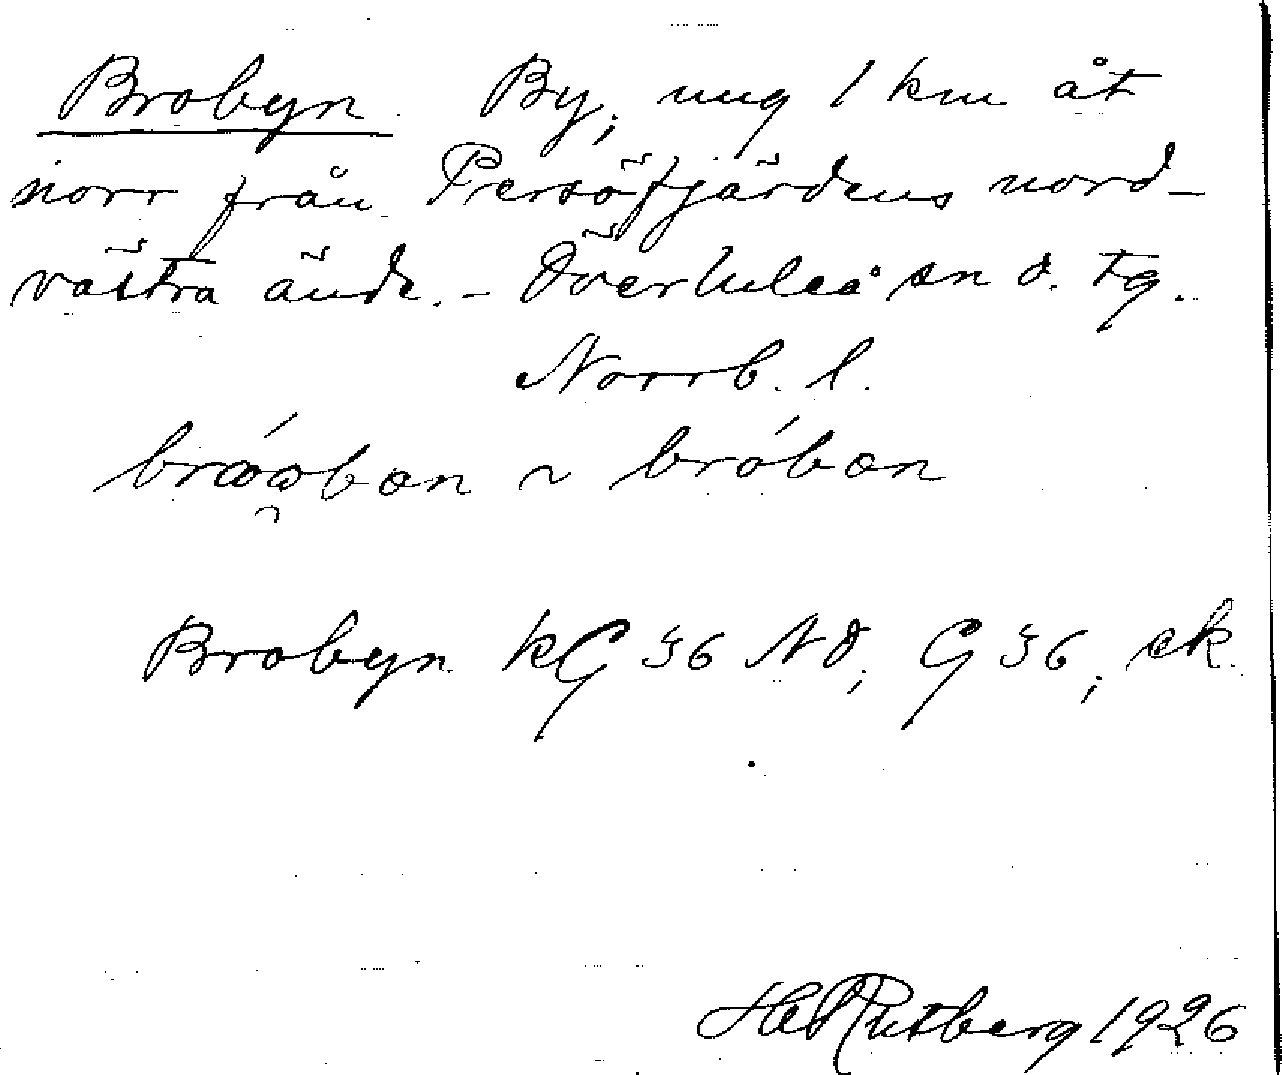 Brobyn. By, ung 1 km åt
norr från Persöfjärdens nord-
västra ände. - Överluleå sn o. tg.
Norrb. l.
bróbon
Brobyn kG 36 NO, G 36, ek.
H Rutberg 1926